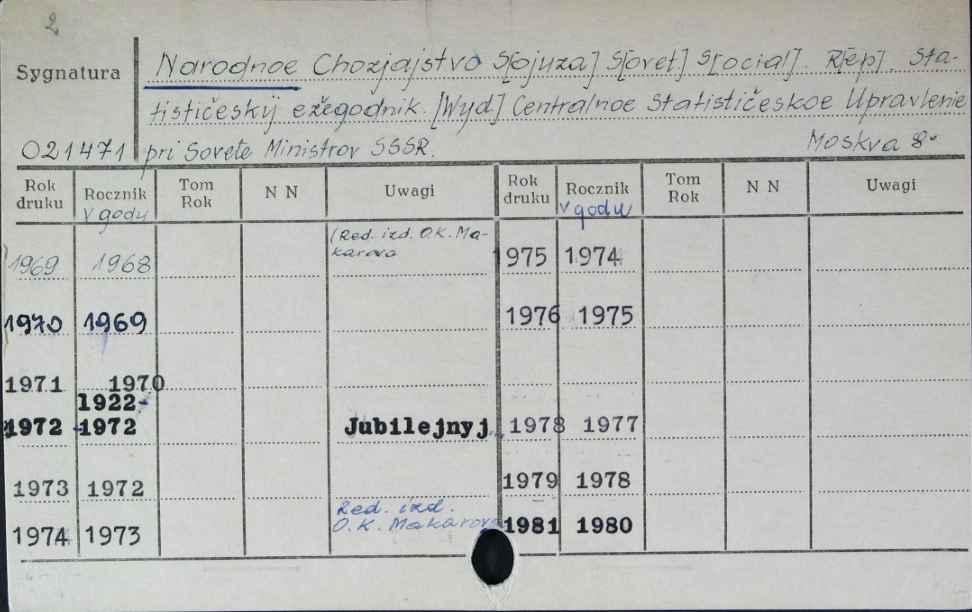 2
Sygnatura
Narodnoe Chozjajstvo S[ojuza] S[ovet] S[ocial]. R[ep]. Sta-
tističeskij ežegodnik. [Wyd] Centralnoe Statističeskoe Upravlenie
021471 pri Sovete Ministrov SSSR. Moskva 8°
Rok druku Rocznik v godu Tom Rok N N Uwagi Rok druku Rocznik v godu Tom Rok N N Uwagi
(Red. izd. O.K. Ma-
karova
1969 1968 1975 1974
1970 1969 1976 1975
1971 1970
1922-
1972 -1972 Jubilejnyj 1978 1977
1973 1972 1979 1978
Red. izd.
O.K. Makarova
1974 1973 1981 1980